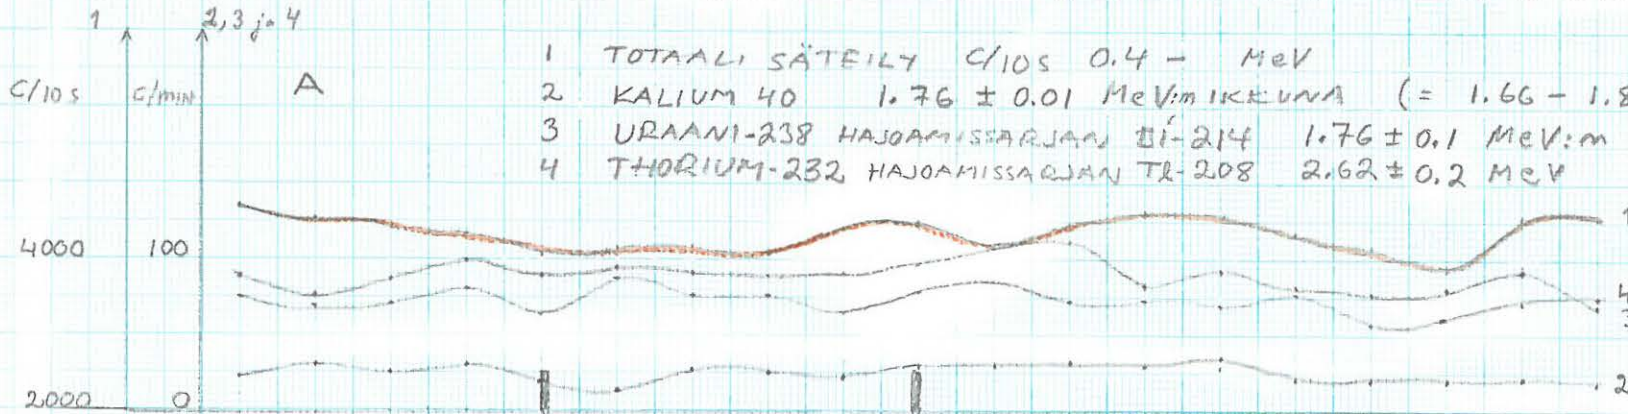 1 2,3 ja 4
1 TOTAALI SÄTEILY C/10s 0.4 - MeV
C/10s C/MIN A
2 KALIUM 40 1.76 ± 0.01 MeV:n IKKUNA (= 1.66 - 1.8
3 URAANI-238 HAJOAMISSARJAN Bi-214 1.76 ± 0.1 MeV:n
4 THORIUM-232 HAJOAMISSARJAN Tl-208 2.62 ± 0.2 MeV
1
4000 100
4
3
2
2000 0